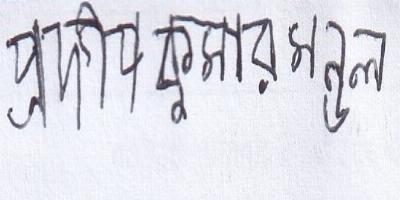 প্রদীপ কুমার মন্ডল